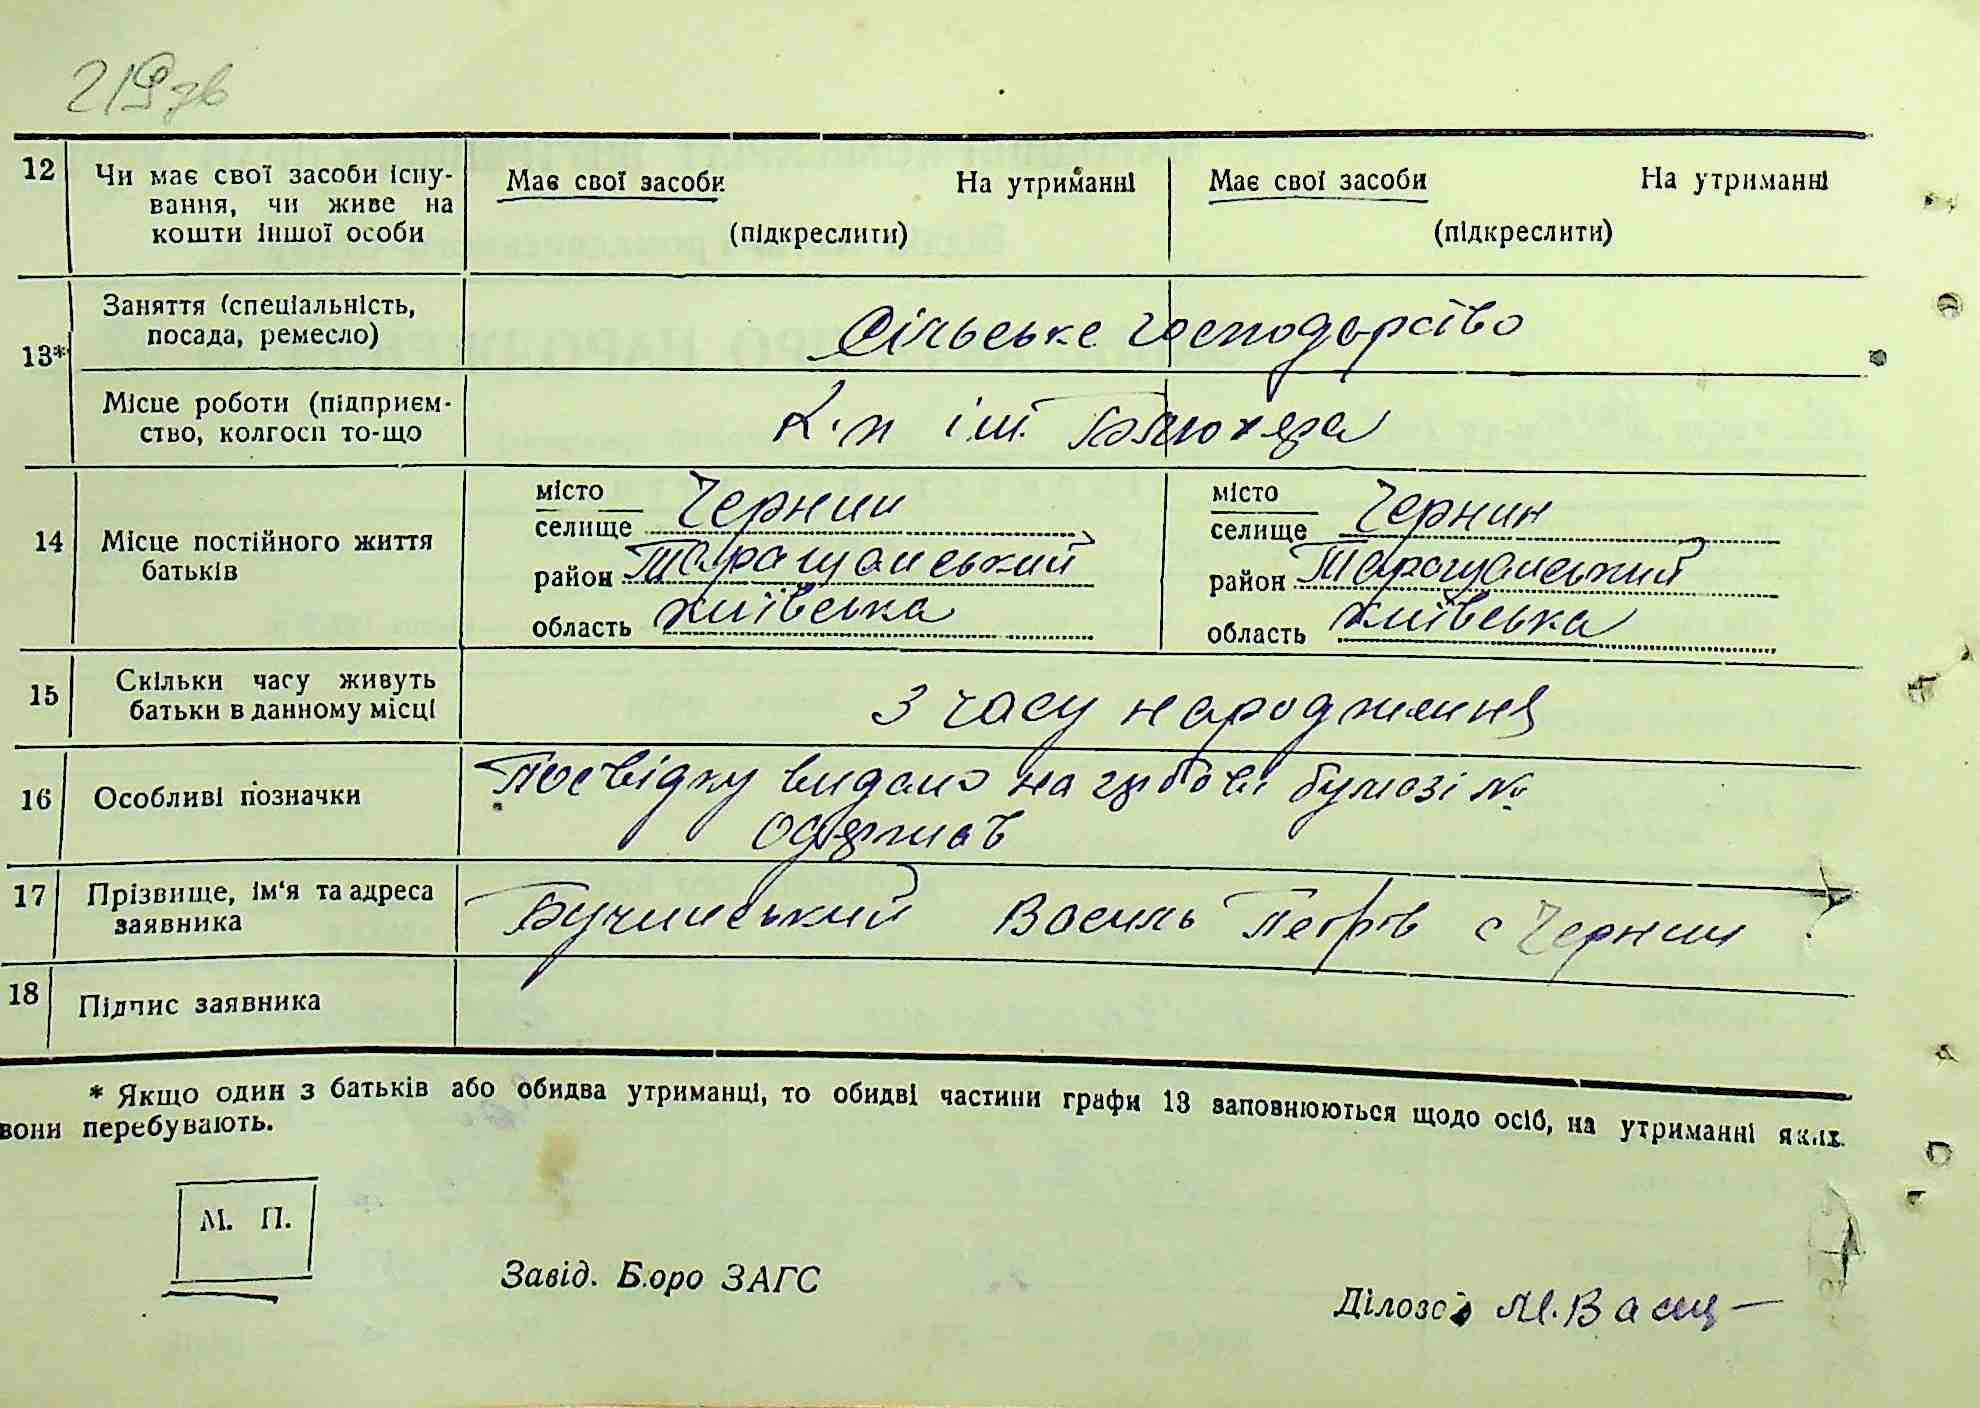 219 зв
12 Чи має свої засоби існу-
вання, чи живе на
кошти іншої особи
Має свої засоби На утриманні
(підкреслити)
Має свої засоби На утриманні
(підкреслити)
13*
Заняття (спеціальність,
посада, ремесло)
Сільське господарство
Місце роботи (підприєм-
ство, колгосп то-що
К-п ім. Блюхера
14 Місце постійного життя
батьків
місто
селище Чернин
район Таращанський
область Київська
місто
селище Чернин
район Таращанський
область Київська
15 Скільки часу живуть
батьки в данному місці
З часу народження
16 Особливі позначки
Посвідку видано на бумозі №
одержав
17 Прізвище, ім'я та адреса
заявника
Бучинський Василь Петрів с Чернин
18 Підпис заявника
* Якщо один з батьків або обидва утриманці, то обидві частини графи 13 заповнюються щодо осіб, на утриманні яких
вони перебувають.
М. П.
Завід. Бюро ЗАГС
Ділозс М. Васи